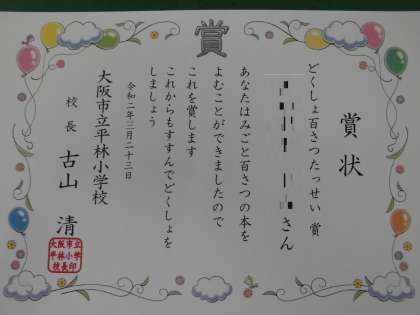 賞
賞状
どくしょ百さつたっせい賞
さん
あなたはみごと百さつの本を
よむことができましたので
これを賞します
これからもすすんでどくしょを
しましょう
令和二年三月二十三日
大阪市立平林小学校
校長 古山 清
大阪市立
平林小学
校長印